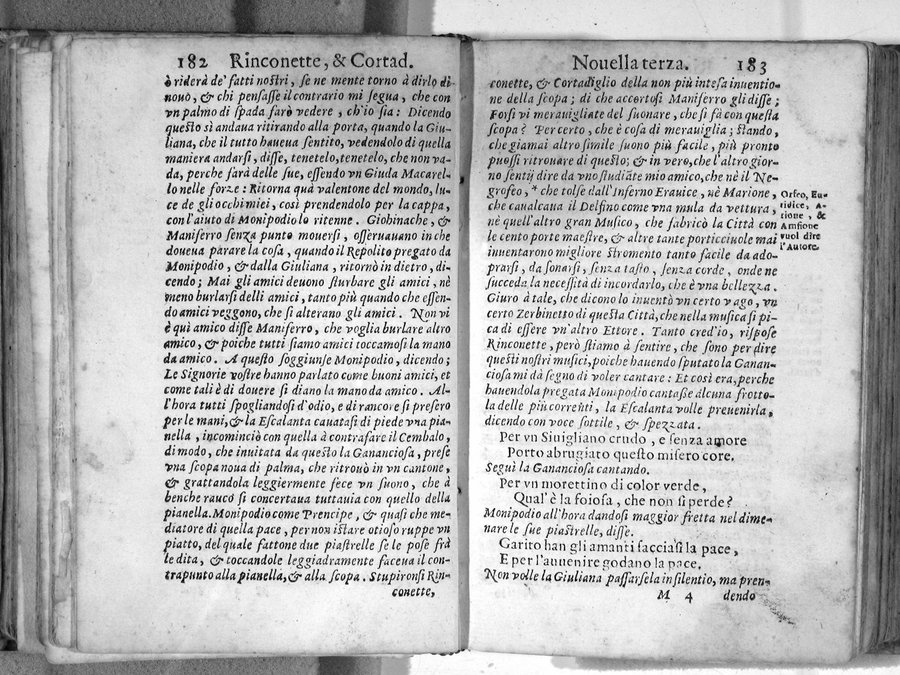 182 Rinconette, & Cortad.
è riderà de' fatti nostri, se ne mente torno à dirlo di
nouo, & chi pensasse il contrario mi segua, che con
vn palmo di spada farò vedere, ch'io sia: Dicendo
questo sì andaua ritirando alla porta, quando la Giu-
liana, che il tutto haueua sentito, vedendolo di quella
maniera andarsi, disse, tenetelo, tenetelo, che non va-
da, perche farà delle sue, essendo vn Giuda Macarel-
lo nelle forze: Ritorna quà valentone del mondo, lu-
ce de gli occhi miei, così prendendolo per la cappa,
con l'aiuto di Monipodio lo ritenne. Giobinache, &
Maniferro senza punto mouersi, osseruauano in che
doueua parare la cosa, quando il Repolito pregato da
Monipodio, & dalla Giuliana, ritornò in dietro, di-
cendo; Mai gli amici deuono sturbare gli amici, nè
meno burlarsi delli amici, tanto più quando che essen-
do amici veggono, che si alterano gli amici. Non vi
è quì amico disse Maniferro, che voglia burlare altro
amico, & poiche tutti siamo amici toccamosi la mano
da amico. A questo soggiunse Monipodio, dicendo;
Le Signorie vostre hanno parlato come buoni amici, et
come tali è di douere si diano la mano da amico. Al-
l'hora tutti spogliandosi d'odio, e di rancore si presero
per le mani, & la Escalanta cauatasi di piede vna pia-
nella, incominciò con quella à contrafare il Cembalo,
di modo, che inuitata da questo la Gananciosa, prese
vna scopa noua di palma, che ritrouò in vn cantone,
& grattandola leggiermente fece vn suono, che à
benche rauco si concertaua tuttauia con quello della
pianella. Monipodio come Prencipe, & quasi che me-
diatore di quella pace, per non istare otioso ruppe vn
piatto, del quale fattone due piastrelle se le pose frà
le dita, & toccandole leggiadramente faceua il con-
trapunto alla pianella, & alla scopa. Stupironsi Rin-
conette,
Nouella terza. 183
conette, & Cortadiglio della non più intesa inuentio-
ne della scopa; di che accortosi Maniferro gli disse;
Forsi vi merauigliate del suonare, che si fà con questa
scopa? Per certo, che è cosa di merauiglia; stando,
che giamai altro simile suono più facile, più pronto
puossi ritrouare di questo; & in vero, che l'altro gior-
no sentij dire da vno studiãte mio amico, che nè il Ne-
grofeo, * che tolse dall'Inferno Erauice, nè Marione,
che caualcaua il Delfino come vna mula da vettura,
nè quell'altro gran Musico, che fabricò la Città con
le cento porte maestre, & altre tante porticciuole mai
inuentarono migliore stromento tanto facile da ado-
prarsi, da sonarsi, senza tasto, senza corde, onde ne
succeda la necessità di incordarlo, che è vna bellezza.
Giuro à tale, che dicono lo inuentò vn certo vago, vn
certo Zerbinetto di questa Città, che nella musica si pi-
ca di essere vn'altro Ettore. Tanto cred'io, rispose
Rinconette, però stiamo à sentire, che sono per dire
questi nostri musici, poiche hauendo sputato la Ganan-
ciosa mi dà segno di voler cantare: Et così era, perche
hauendola pregata Monipodio cantasse alcuna frotto-
la delle più correnti, la Escalanta volle preuenirla,
dicendo con voce sottile, & spezzata.
Per vn Siuigliano crudo, e senza amore
Porto abrugiato questo misero core.
Seguì la Gananciosa cantando.
Per vn morettino di color verde,
Qual'è la foiosa, che non si perde?
Monipodio all'hora dandosi maggior fretta nel dime-
nare le sue piastrelle, disse.
Garito han gli amanti facciasi la pace,
E per l'auuenire godano la pace.
Non volle la Giuliana passarsela in silentio, ma pren-
M 4 dendo
Orfeo, Eu-
ridice, A-
rione, &
Amfione
vuol dire
l'Autore.